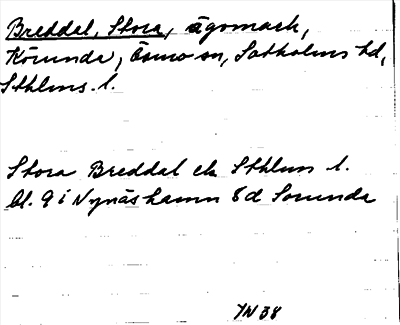 Breddal, Stora, ägomark,
Körunda, Ösmo sn, Sotholms hd,
Sthlms. l.
Stora Breddal ek Sthlms l.
bl. 9 i Nynäshamn 8d Sorunda
YN 38